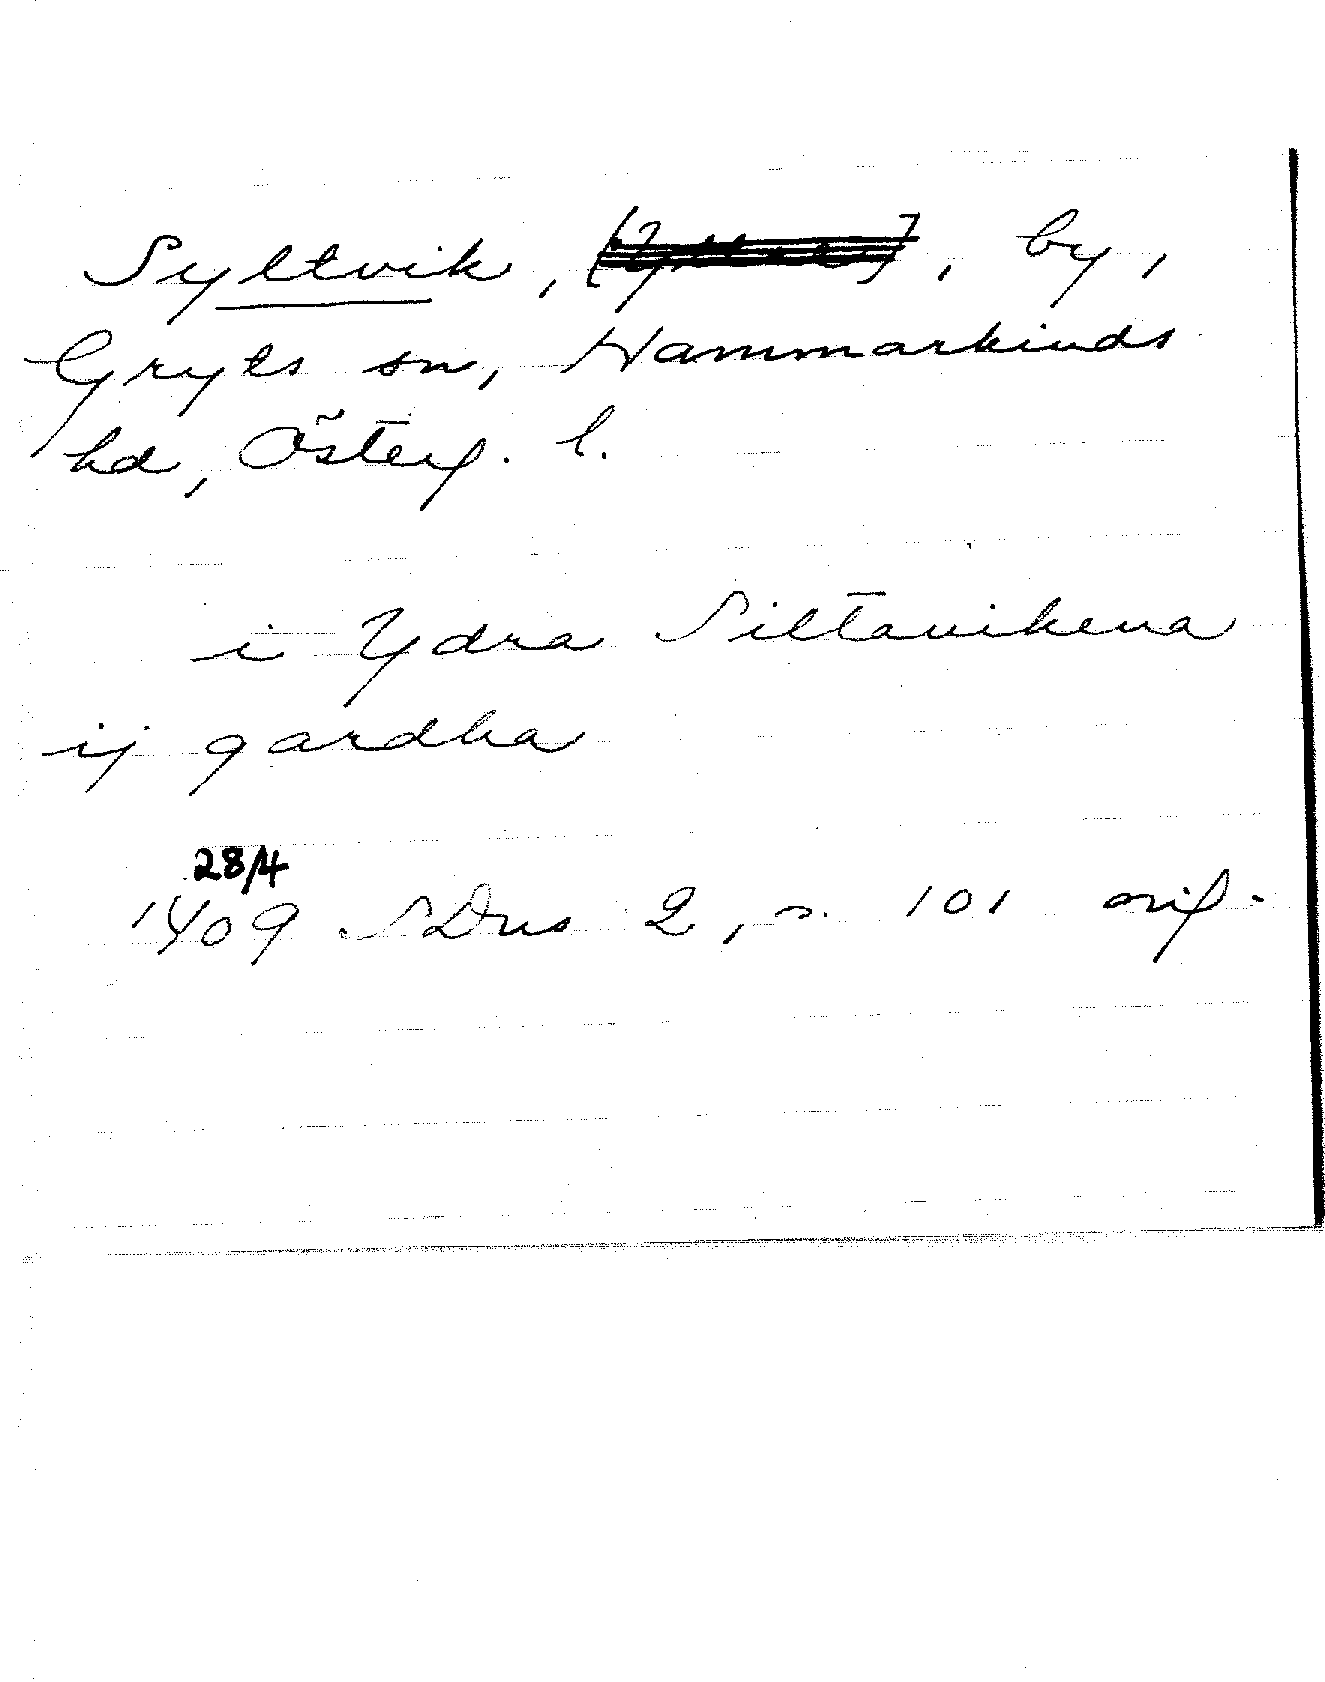 Syltvik, , by,
Gryts sn, Hammarkinds
hd, Österg. l.
i Ydra Siltavikena
ij gardha
28/4
1409 SDns 2, s. 101 orig.